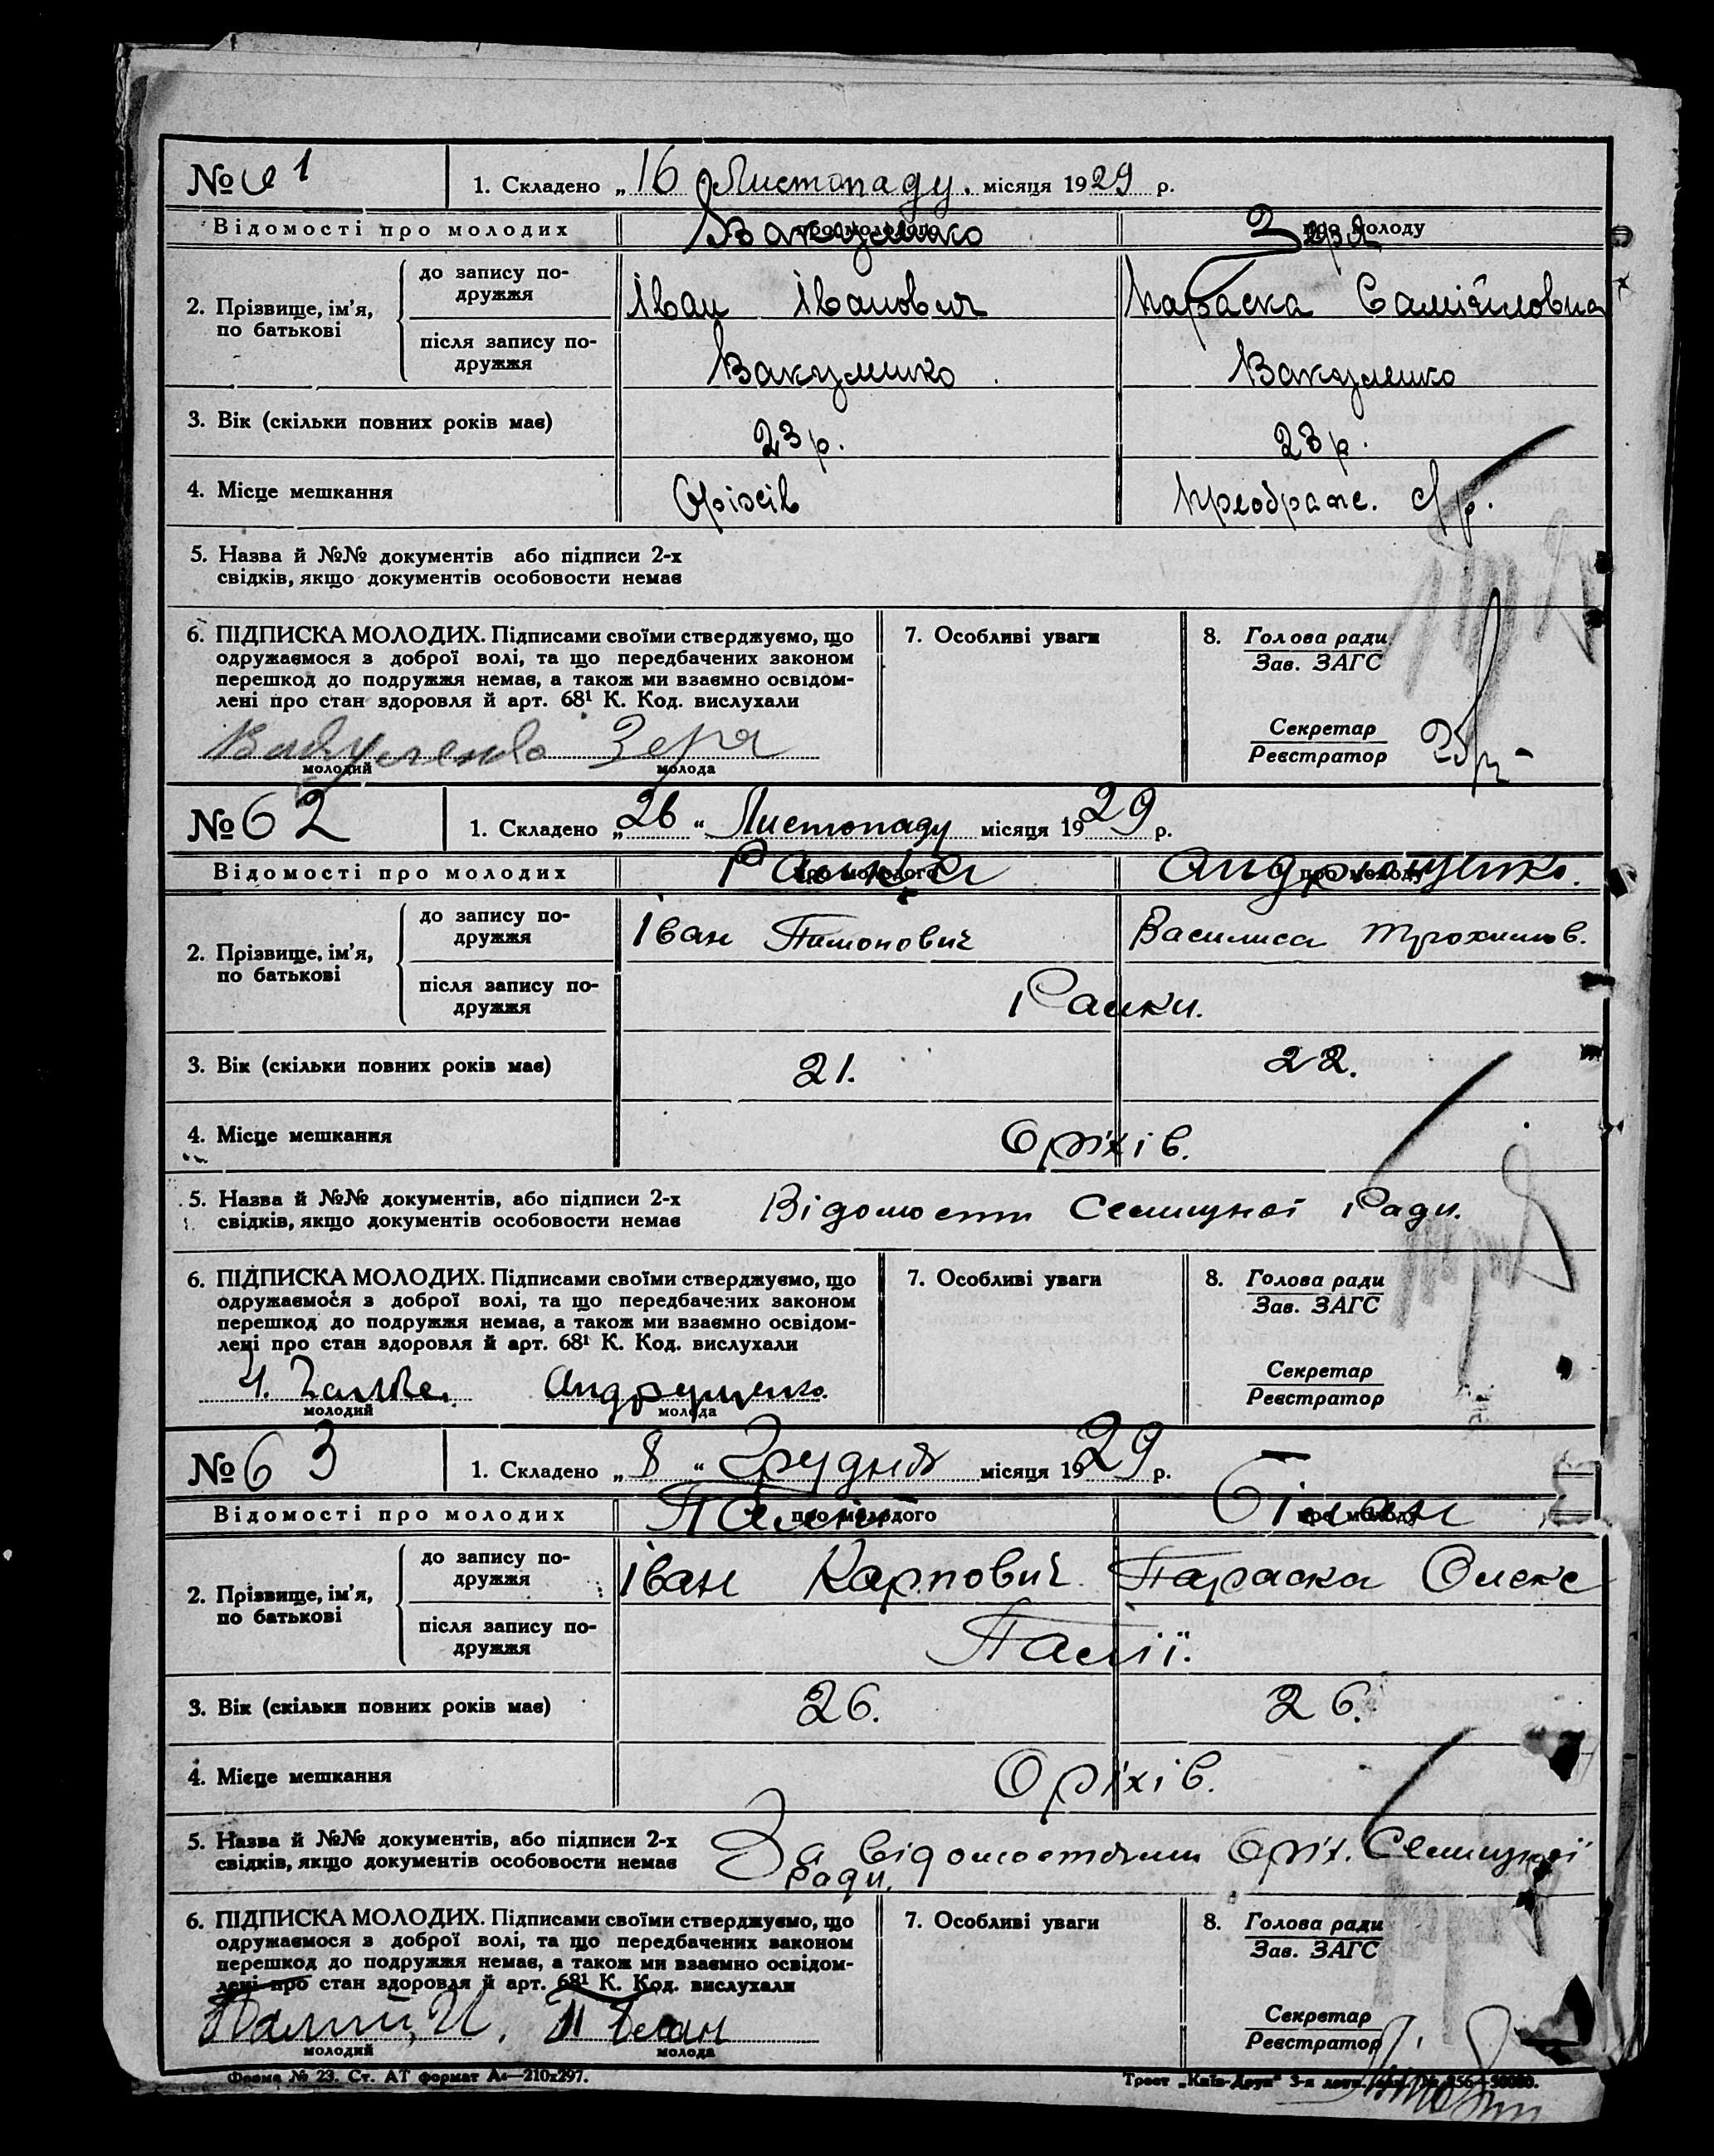 № 61 1. Складено „ 16 Листопаду. місяця 1929 р.
Відомості про молодих про молодого про молоду
Вакуленко Зеря
до запису по-
дружжя
Іван Іванович Параска Самійловна
2. Прізвище, ім'я,
по батькові
після запису по-
дружжя
Вакуленко Вакуленко
3. Вік (скільки повних років має) 23 р. 23 р.
4. Місце мешкання Оріхів Преображ.
5. Назва й №№ документів або підписи 2-х
свідків, якщо документів особовости немає
6. ПІДПИСКА МОЛОДИХ. Підписами своїми стверджуємо, що
одружаємося з доброї волі, та що передбачених законом
перешкод до подружжя немає, а також ми взаємно освідом-
лені про стан здоровля й арт. 68¹ К. Код. вислухали
Вакуленко Зеря
молодий молода
7. Особливі уваги
8. Голова ради
Зав. ЗАГС
Секретар
Реєстратор
№ 62 1. Складено „ 26 “ Листопаду місяця 1929 р.
Відомості про молодих про молодого про молоду
Андрющенко.
до запису по-
дружжя
Іван Пимонович Василиса Трохимов.
2. Прізвище, ім'я,
по батькові
після запису по-
дружжя
3. Вік (скільки повних років має) 21. 22.
4. Місце мешкання Оріхів.
5. Назва й №№ документів, або підписи 2-х
свідків, якщо документів особовости немає
Відомости Селищної Ради.
6. ПІДПИСКА МОЛОДИХ. Підписами своїми стверджуємо, що
одружаємося з доброї волі, та що передбачених законом
перешкод до подружжя немає, а також ми взаємно освідом-
лені про стан здоровля й арт. 68¹ К. Код. вислухали
Андрущенко.
молодий молода
7. Особливі уваги
8. Голова ради
Зав. ЗАГС
Секретар
Реєстратор
№ 63 1. Складено „ 8 “ Грудня місяця 1929 р.
Відомості про молодих про молодого про молоду
Палій Білан
до запису по-
дружжя
Іван Карпович Параска Олекс
2. Прізвище, ім'я,
по батькові
після запису по-
дружжя
Палії.
3. Вік (скільки повних років має) 26. 26.
4. Місце мешкання Оріхів.
5. Назва й №№ документів, або підписи 2-х
свідків, якщо документів особовости немає
За відомостями Оріх. Селищної
ради.
6. ПІДПИСКА МОЛОДИХ. Підписами своїми стверджуємо, що
одружаємося з доброї волі, та що передбачених законом
перешкод до подружжя немає, а також ми взаємно освідом-
лені про стан здоровля й арт. 68¹ К. Код. вислухали
Палий, И. П Белан
молодий молода
7. Особливі уваги
8. Голова ради
Зав. ЗАГС
Секретар
Реєстратор
Форма № 23. Ст. АТ формат А4—210х297. Трест „Київ-Друк“ 3-я